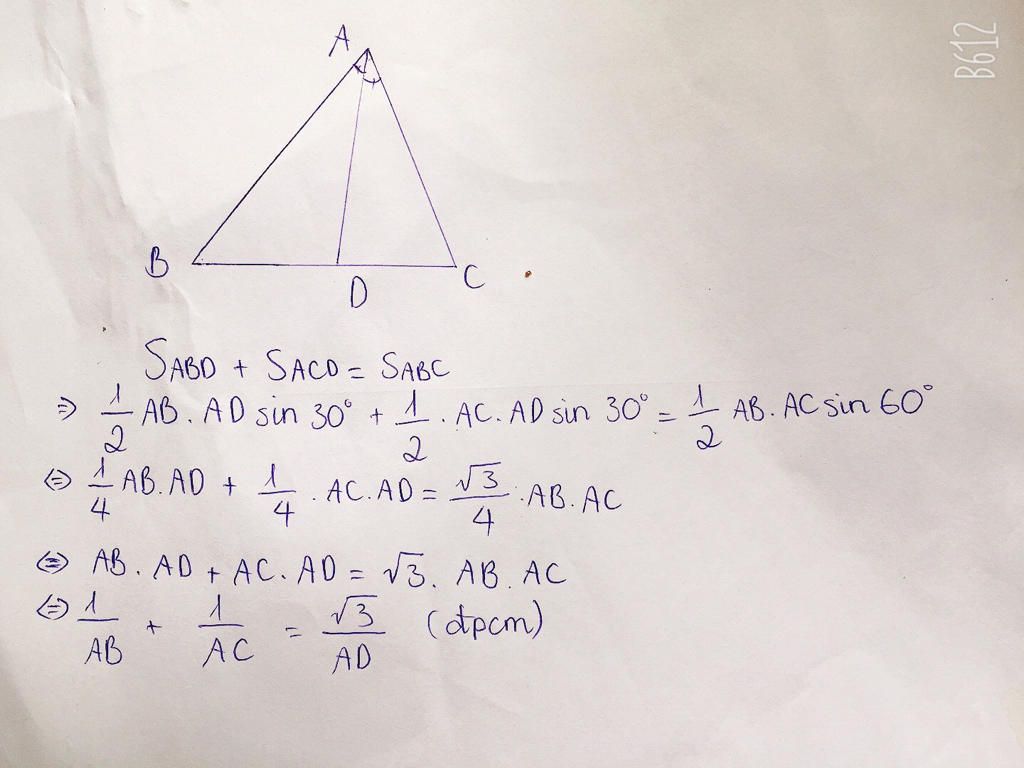 A
B612
B
C
D
SABD + SACD = SABC
⇒ 1/2 AB . AD sin 30° + 1/2 . AC . AD sin 30° = 1/2 AB . AC sin 60°
⇔ 1/4 AB . AD + 1/4 . AC . AD = √3/4 . AB . AC
⇔ AB . AD + AC . AD = √3 . AB . AC
⇔ 1/AB + 1/AC = √3/AD (đpcm)